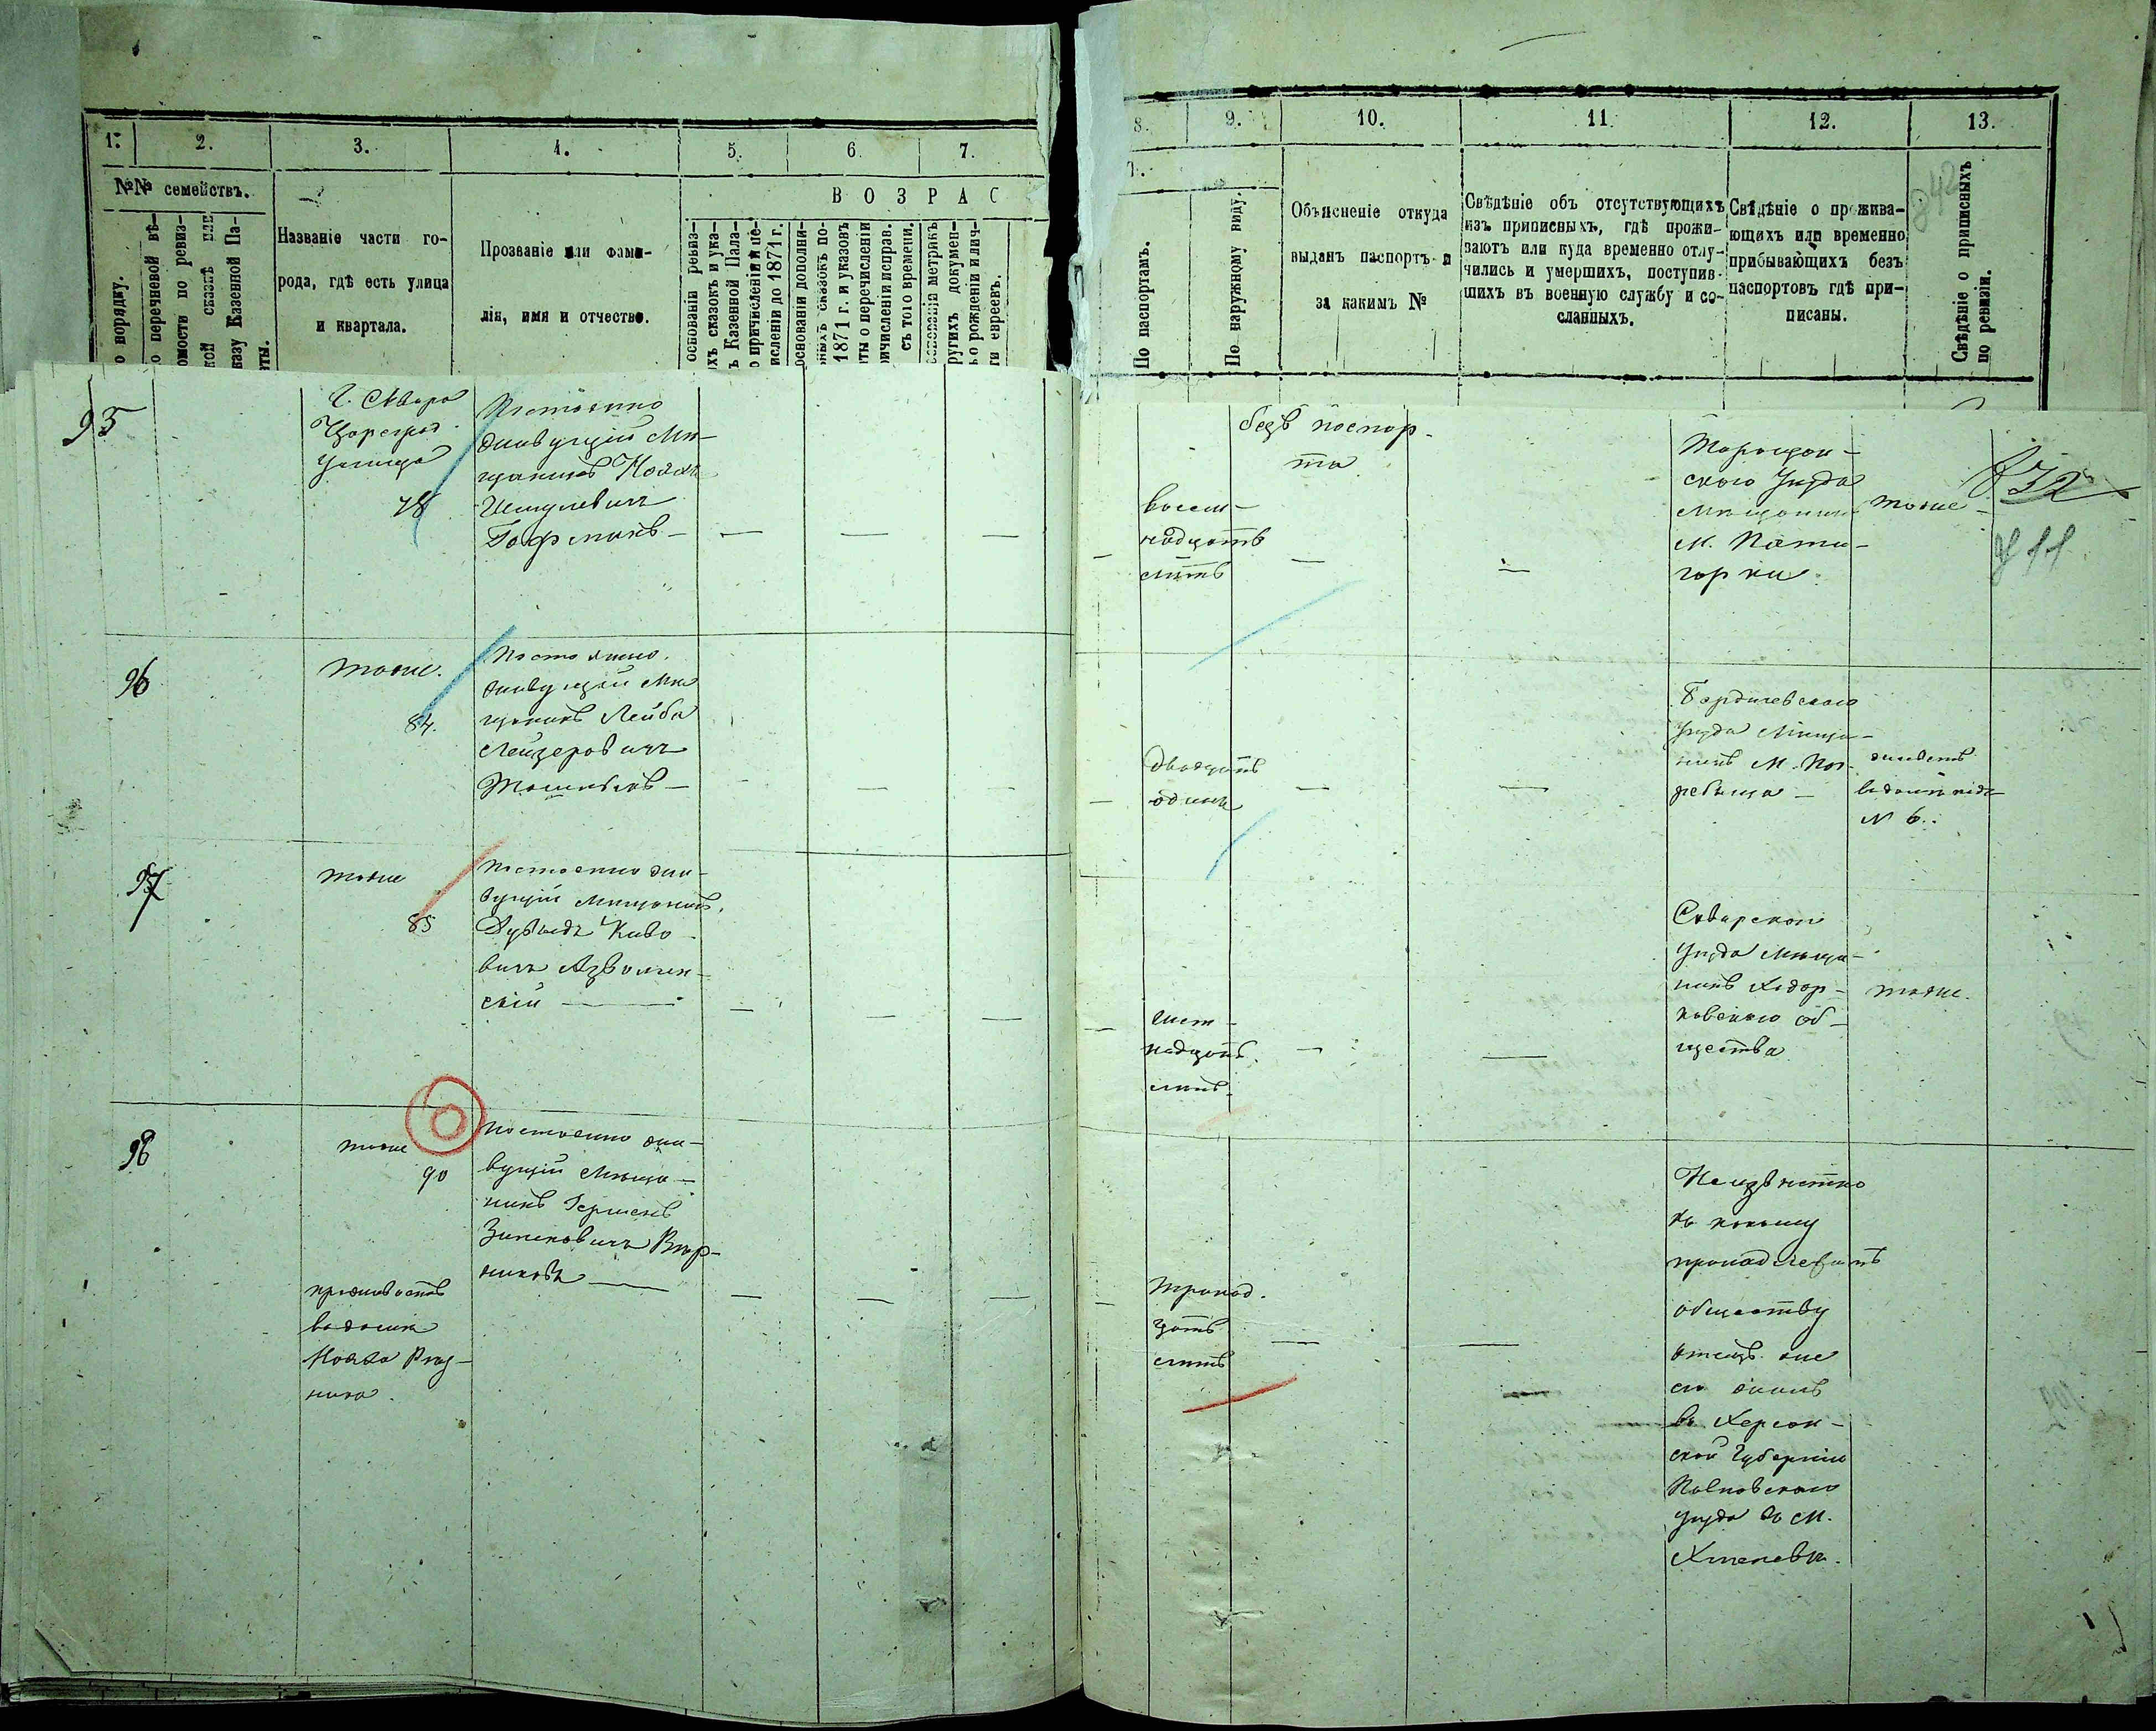 1.
2.
3.
4.
5.
6.
7.
8.
9.
10.
11.
12.
13.
№№ семействъ.
о порядку.
о перечневой вѣ-
омости по ревиз-
кой сказкѣ или
казу Казенной Па-
ты.
Названіе части го-
рода, гдѣ есть улица
и квартала.
Прозваніе или фами-
лія, имя и отчество.
В О З Р А С
основаніи ревиз-
хъ сказокъ и ука-
ъ Казенной Пала-
о причисленіи и пе-
исленіи до 1871 г.
основаніи дополни-
ныхъ сказокъ по-
1871 г. и указовъ
ты о перечисленіи
ричисленіи исправ.
съ того времени.
основаніи метрикъ
ругихъ докумен-
ъ о рожденіи и лич-
ти евреевъ.
По паспортамъ.
По наружному виду.
Объясненіе откуда
выданъ паспортъ и
за какимъ №
Свѣдѣніе объ отсутствующихъ
изъ приписныхъ, гдѣ прожи-
ваютъ или куда временно отлу-
чились и умершихъ, поступив-
шихъ въ военную службу и со-
сланныхъ.
Свѣдѣніе о прожива-
ющихъ или временно
прибывающихъ безъ
паспортовъ гдѣ при-
писаны.
Свѣдѣніе о приписныхъ
по ревизіи.
842
95
Г. Сквира
Цареград.
Улица
78
Постоянно
живущій Мѣ-
щанинъ
Гофманъ —
восем-
надцать
лѣтъ
безъ паспор-
та
Таращан-
скаго Уѣзда
Мѣщанинъ
М. Пяти-
горки
тоже
832
811
96
тоже.
84.
Постоянно
живущій Мѣ
щанинъ Лейба
Лейзеровичъ
двадцать
одинъ
Бердичевскаго
Уѣзда Мѣща-
нинъ М. Пог-
ребища —
живетъ
№ 6.
97
тоже
85
Постоянно жи-
вущій Мѣщанинъ
Киво-
вичъ
скій —
шест-
надцать
лѣтъ.
Сквирскаго
Уѣзда Мѣща-
нинъ Ходор-
ковскаго об-
щества
тоже.
98
тоже
90
Постоянно жи-
вущій Мѣща-
нинъ Гершенъ
проживаетъ
въ домѣ
тринад.
цать
лѣтъ
Неизвѣстно
къ какому
принадлежитъ
обществу
отецъ же
его жилъ
въ Херсон-
ской Губерніи
Уѣзда въ М.